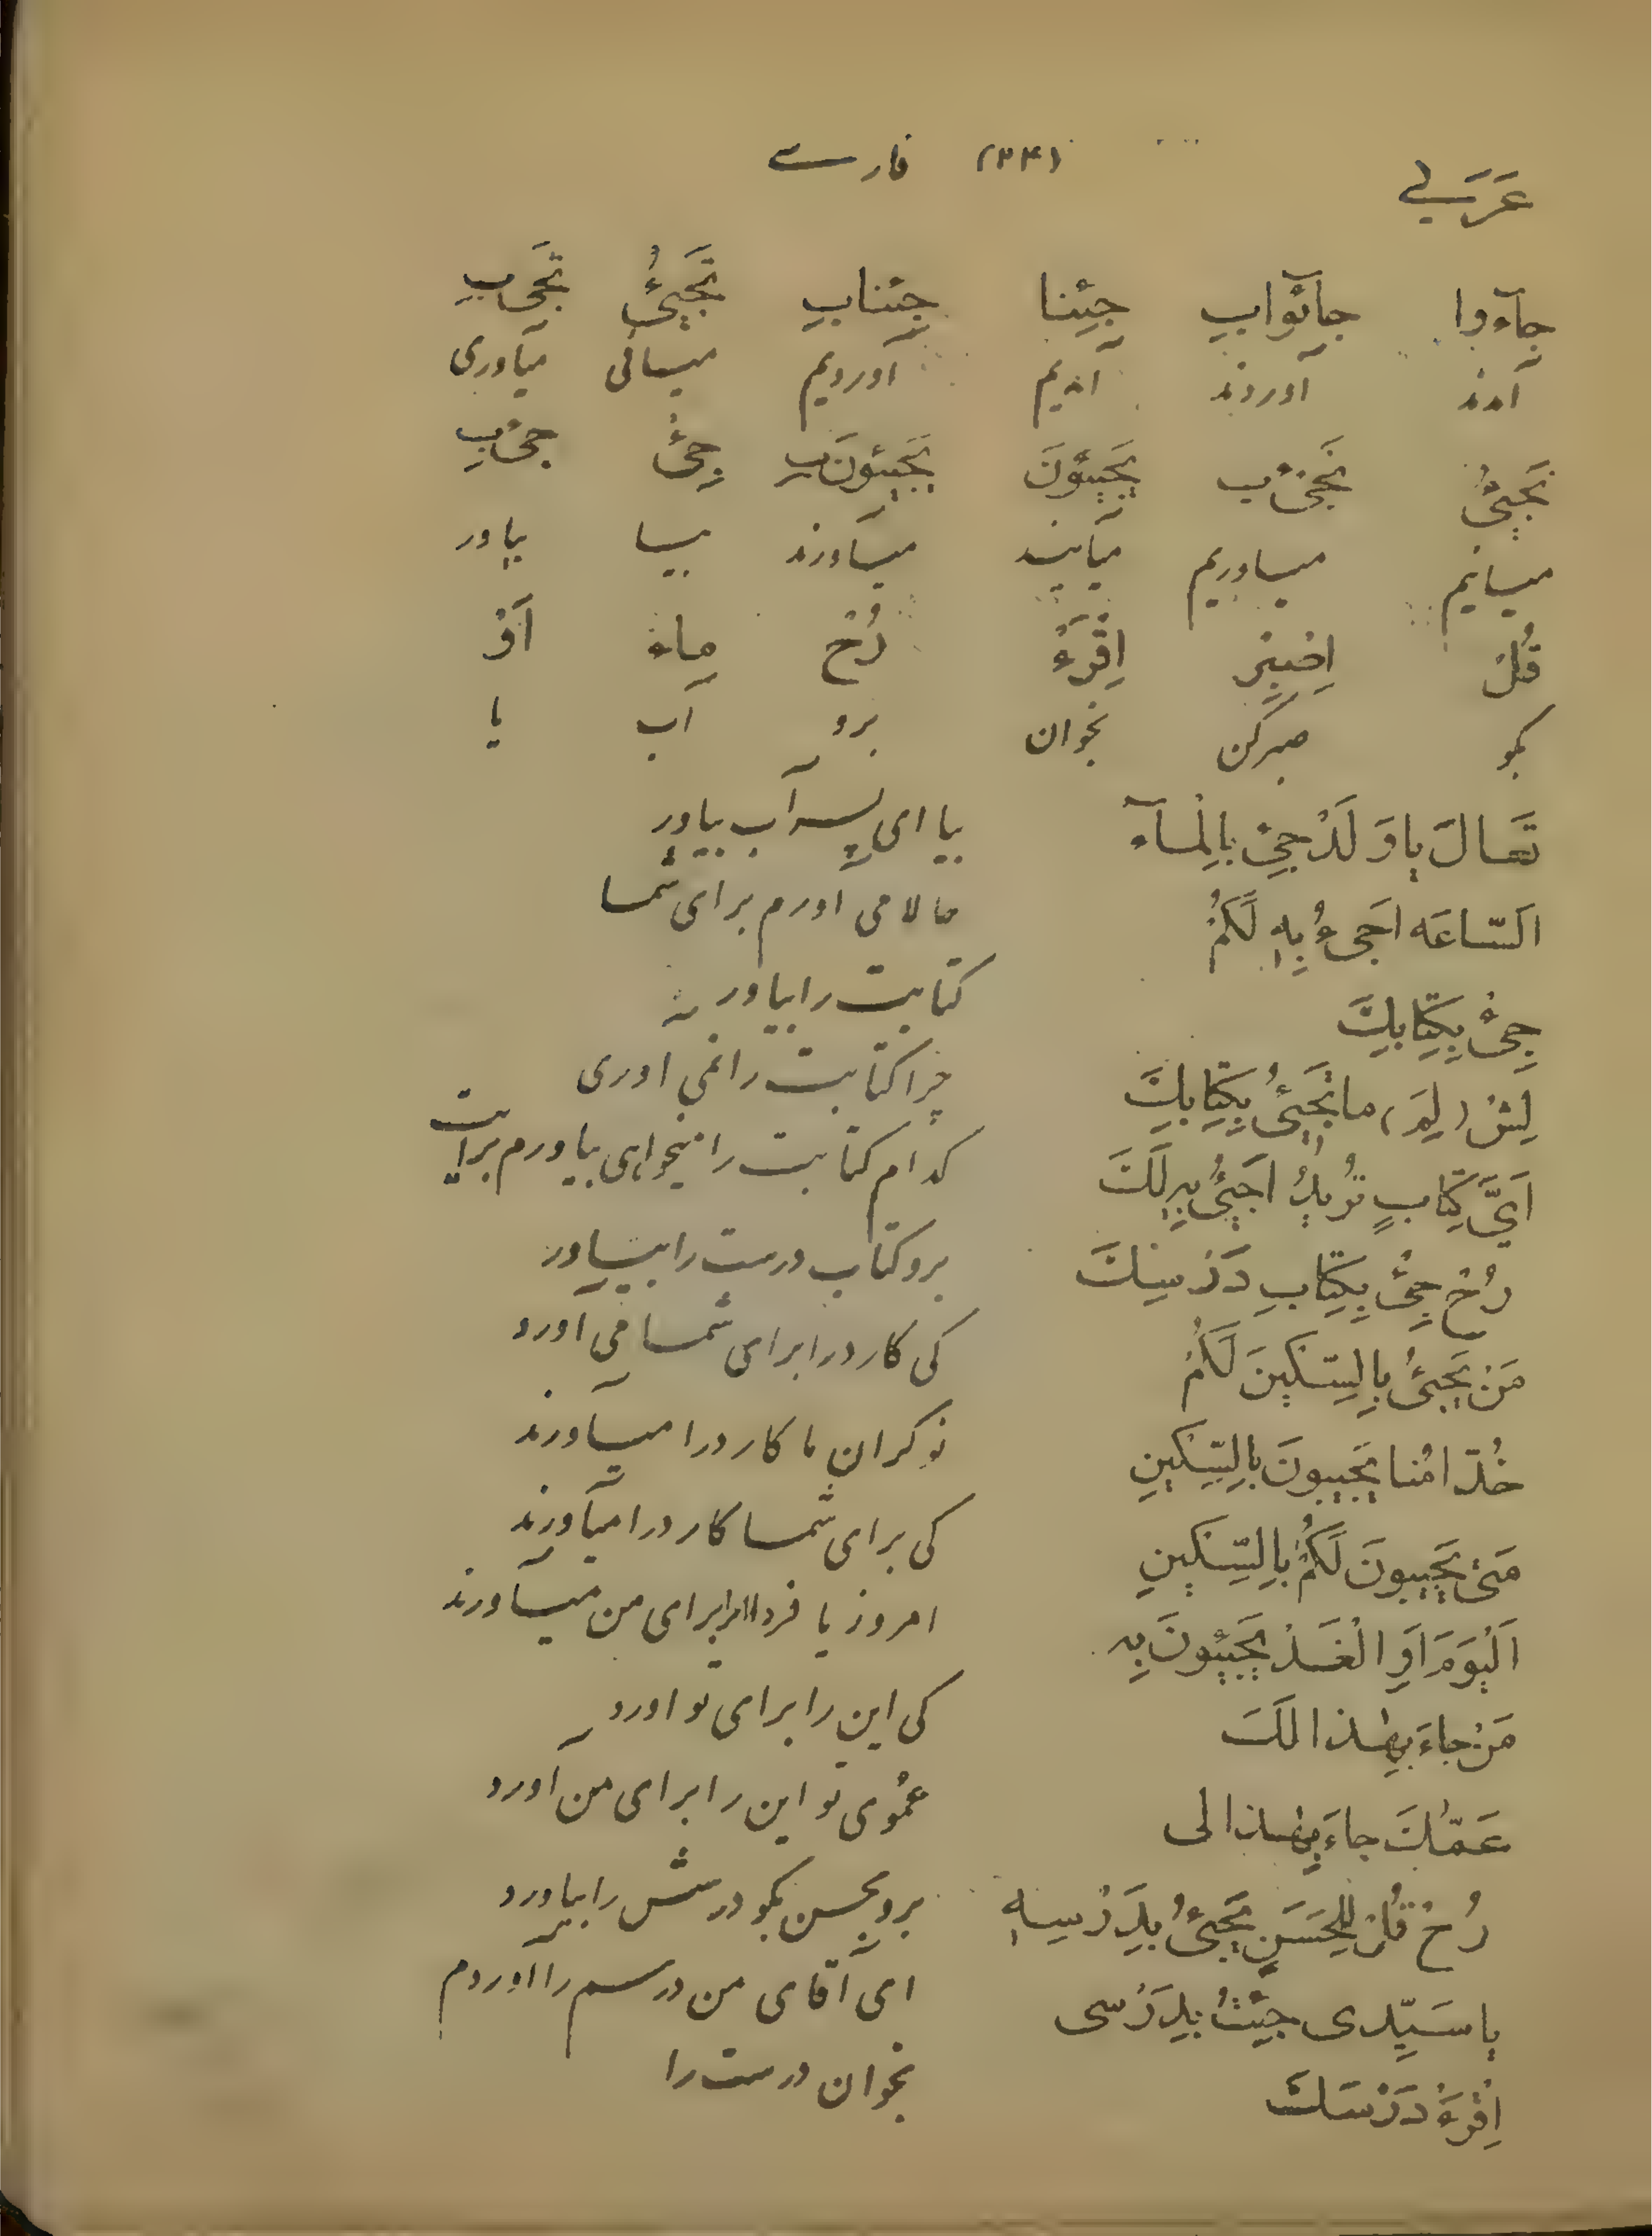 عَرَبي (۳۴) فارسے
جآءوا جآئواب جِئنا جِئناب تَجيئُ تَجئ‌ب
آمدند آوردند آمدیم آوردیم میائی میآوری
نَجيئُ نَجئ‌ب يَجيئونَ يَجيئونَ‌ب جِئْ جِئْ‌ب
میائیم میاوریم میآیند میآورند بیا بیاور
قُلْ اِصْبِرْ اِقْرَءْ رُحْ ماء اَوْ
بگو صبرکن بخوان برو آب یا
تَعالَ ياوَلَدْ جِئْ بِالْمآء بیا ای پسر آب بیاور
اَلسّاعَه اَجيءُ بِهِ لَكُمْ حالا می اورم برای شما
جِئْ بِكِتابِكَ کتابت را بیاور
لِشْ (لِمَ) ما تَجيئُ بِكِتابِكَ چرا کتابت را نمی اوری
اَيَّ كِتابٍ تُريدُ اَجيئُ بِهِ لَكَ کدام کتابت را میخواهی بیاورم برایت
رُحْ جِئْ بِكِتابِ دَرْسِكَ برو کتاب درست را بیاور
مَنْ يَجيئُ بِالسِّكّينَ لَكُمْ کی کارد را برای شما می آورد
خُدّامُنا يَجيبونَ بِالسِّكّينِ نوکران ما کارد را میآورند
مَتىٰ يَجيبونَ لَكُمْ بِالسِّكّينِ کی برای شما کارد را میآورند
اَلْيَوْمَ اَوِ الْغَدْ يَجيئونَ بِه امروز یا فردا برای من میآورند
مَنْ جاءَ بِهٰذا لَكَ کی این را برای تو اورد
عَمُّكَ جاءَ بِهٰذا لی عمُوی تو این را برای من آورد
رُحْ قُلْ لِلْحَسَنِ يَجيئُ بِدَرْسِهِ برو بحسن بگو درسش را بیاورد
ياسَيِّدی جِئْتُ بِدَرْسی ای آقای من درسم را اوردم
اِقْرَءْ دَرْسَكَ بخوان درست را